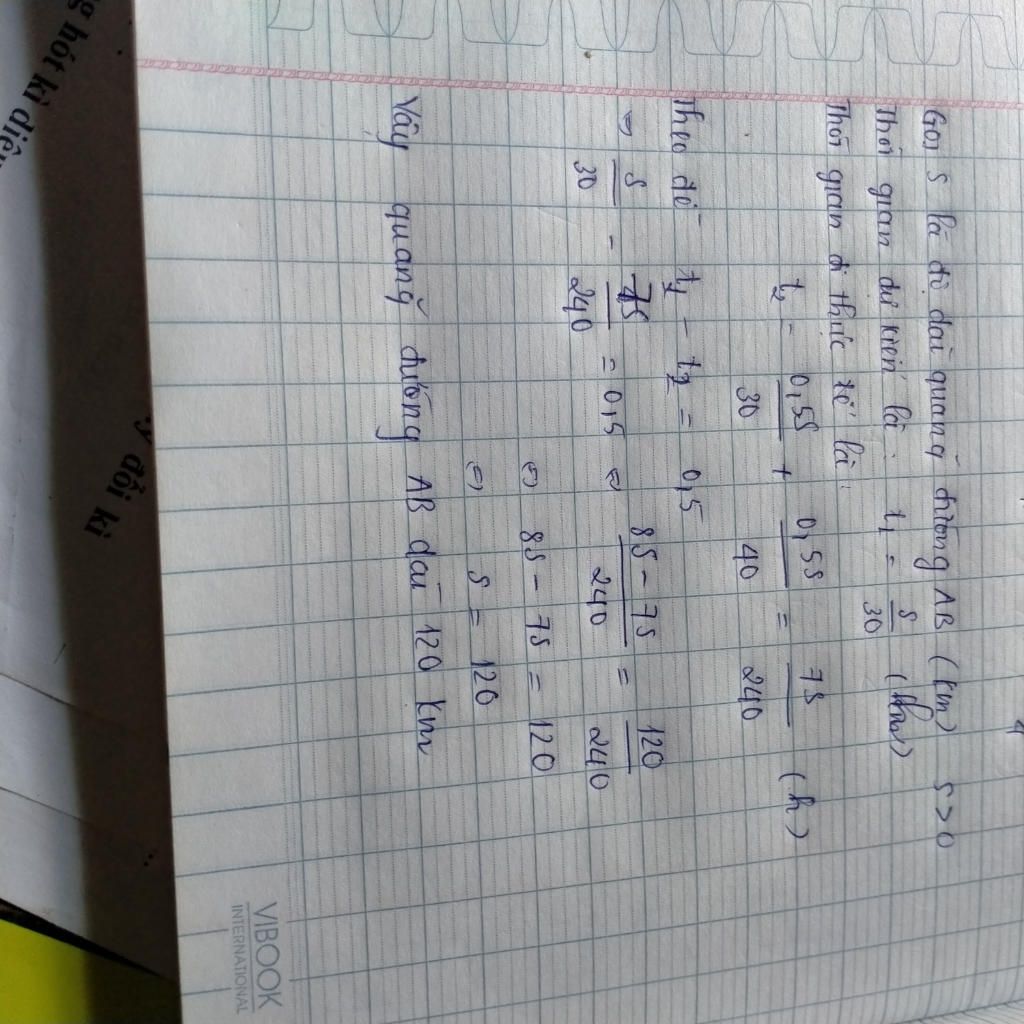 Gọi S là độ dài quãng đường AB (km) S>0
Thời gian dự kiến là: t1 = S/30
Thời gian đi thực tế là:
t2 = 0,5S/30 + 0,5S/40 = 7S/240 (h)
Theo đề t1 - t2 = 0,5
⇔ S/30 - 7S/240 = 0,5 ⇔ 8S - 7S/240 = 120/240
⇔ 8S - 7S = 120
⇔ S = 120
Vậy quãng đường AB dài 120 km
VIBOOK
INTERNATIONAL
hót kì diệu
đổi kì